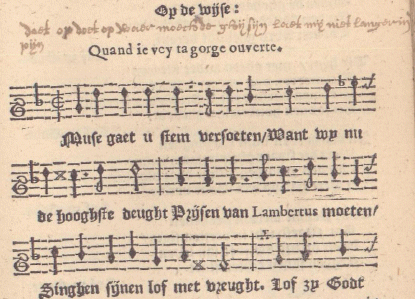 Op de wijse:
daet op doet op
niet langer in
pijn
Quand ie vey ta gorge ouverte.
Muse gaet u stem versoeten/Want wy nu
de hooghste deught Prijsen van Lambertus moeten/
Singhen sijnen lof met vreught. Lof zy Godt